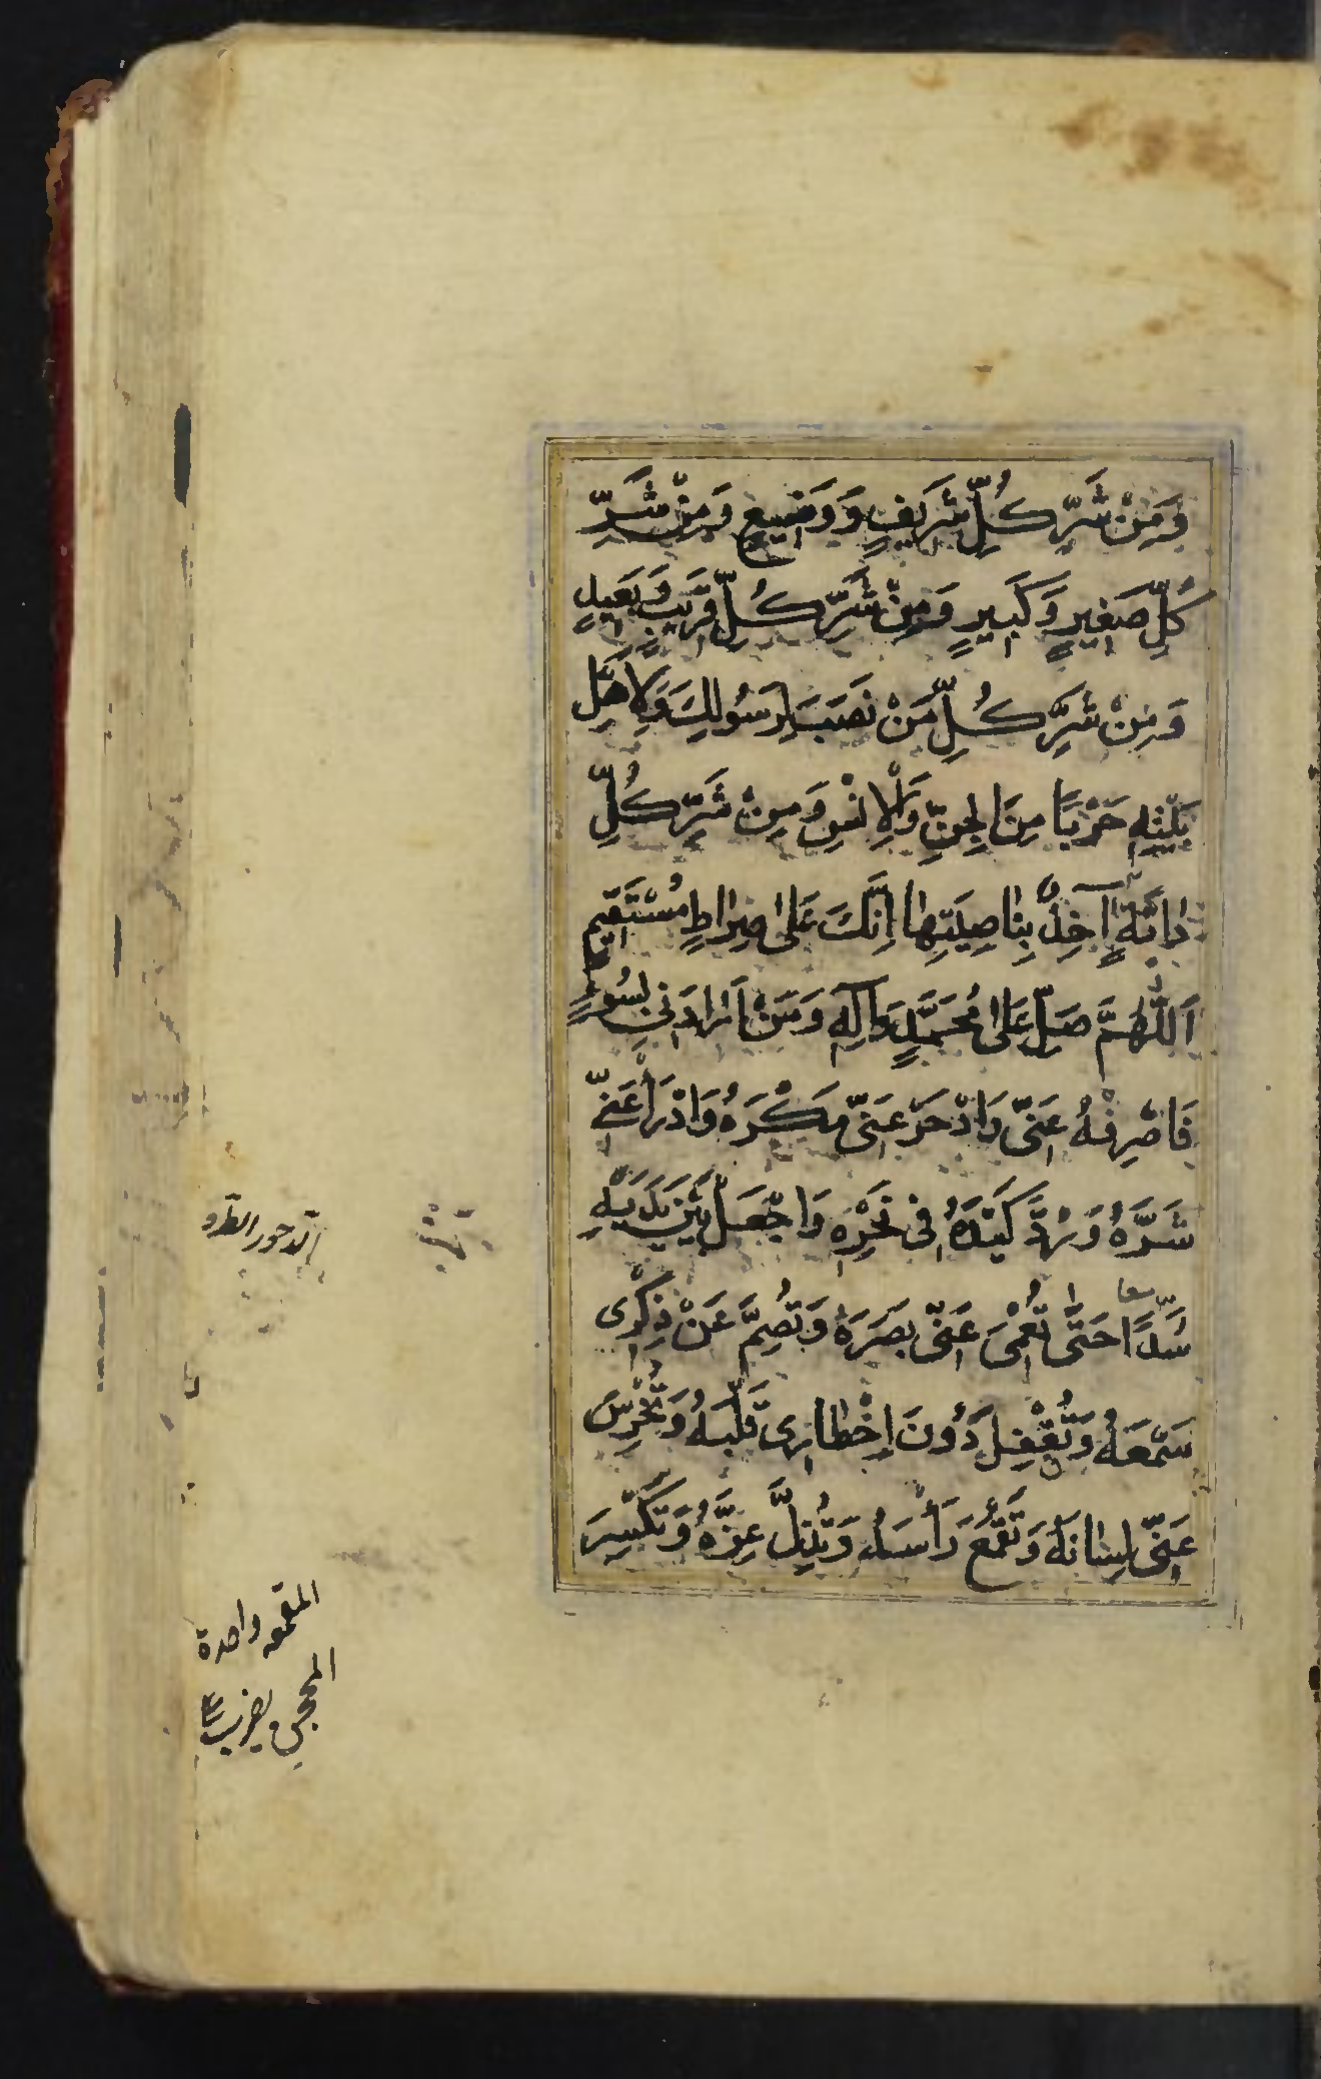 وَمِنْ شَرِّ كُلِّ شَرِيفٍ وَوَضِيعٍ وَمِنْ شَرِّ
كُلِّ صَغِيرٍ وَكَبِيرٍ وَمِنْ شَرِّ كُلِّ قَرِيبٍ وَبَعِيدٍ
وَمِنْ شَرِّ كُلِّ مَنْ نَصَبَ لِرَسُولِكَ وَلِاَهْلِ
بَيْتِهِ حَرْبًا مِنَ الْجِنِّ وَالْاِنْسِ وَمِنْ شَرِّ كُلِّ
دابَّةٍ آخِذٌ بِناصِيَتِها اِنَّكَ عَلى صِراطٍ مُسْتَقِيمٍ
اَللّٰهُمَّ صَلِّ عَلى مُحَمَّدٍ وَآلِهِ وَمَنْ اَرادَنِي بِسُوءٍ
فَاصْرِفْهُ عَنِّي وَادْحَرْ عَنِّي مَكْرَهُ وَادْرَأْ عَنِّي
شَرَّهُ وَرُدَّ كَيْدَهُ فِي نَحْرِهِ وَاجْعَلْ بَيْنَ يَدَيْهِ
سُدًّا حَتّى تُعْمِيَ عَنِّي بَصَرَهُ وَتُصِمَّ عَنْ ذِكْرِي
سَمْعَهُ وَتُقْفِلَ دُونَ اِخْطارِي قَلْبَهُ وَتُخْرِسَ
عَنِّي لِسانَهُ وَتَقْمَعَ رَأْسَهُ وَتُذِلَّ عِزَّهُ وَتَكْسِرَ
الدحور الطرد
المقمعه واحدة